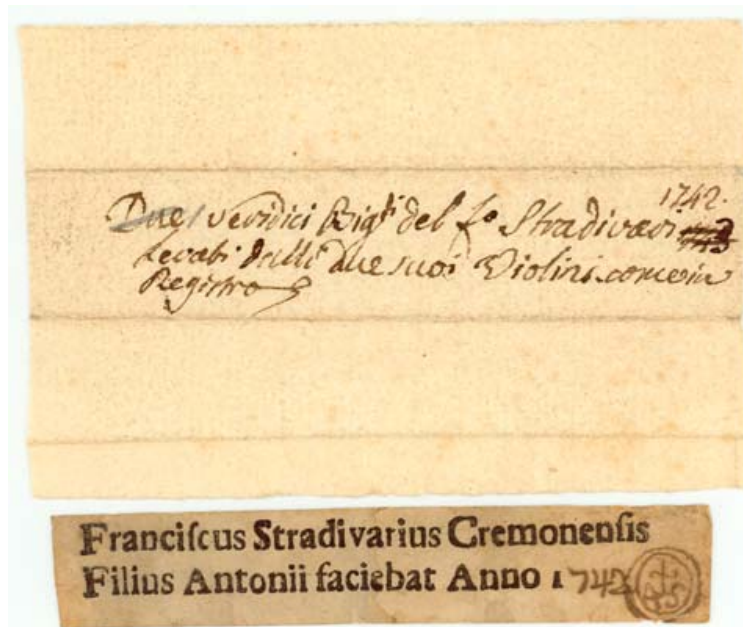 1742.
Due veridici Big.ti del f.o Stradivari
levati dalli Due suoi Violini come in
Registro
Franciſcus Stradivarius Cremonenſis
Filius Antonii faciebat Anno 1742